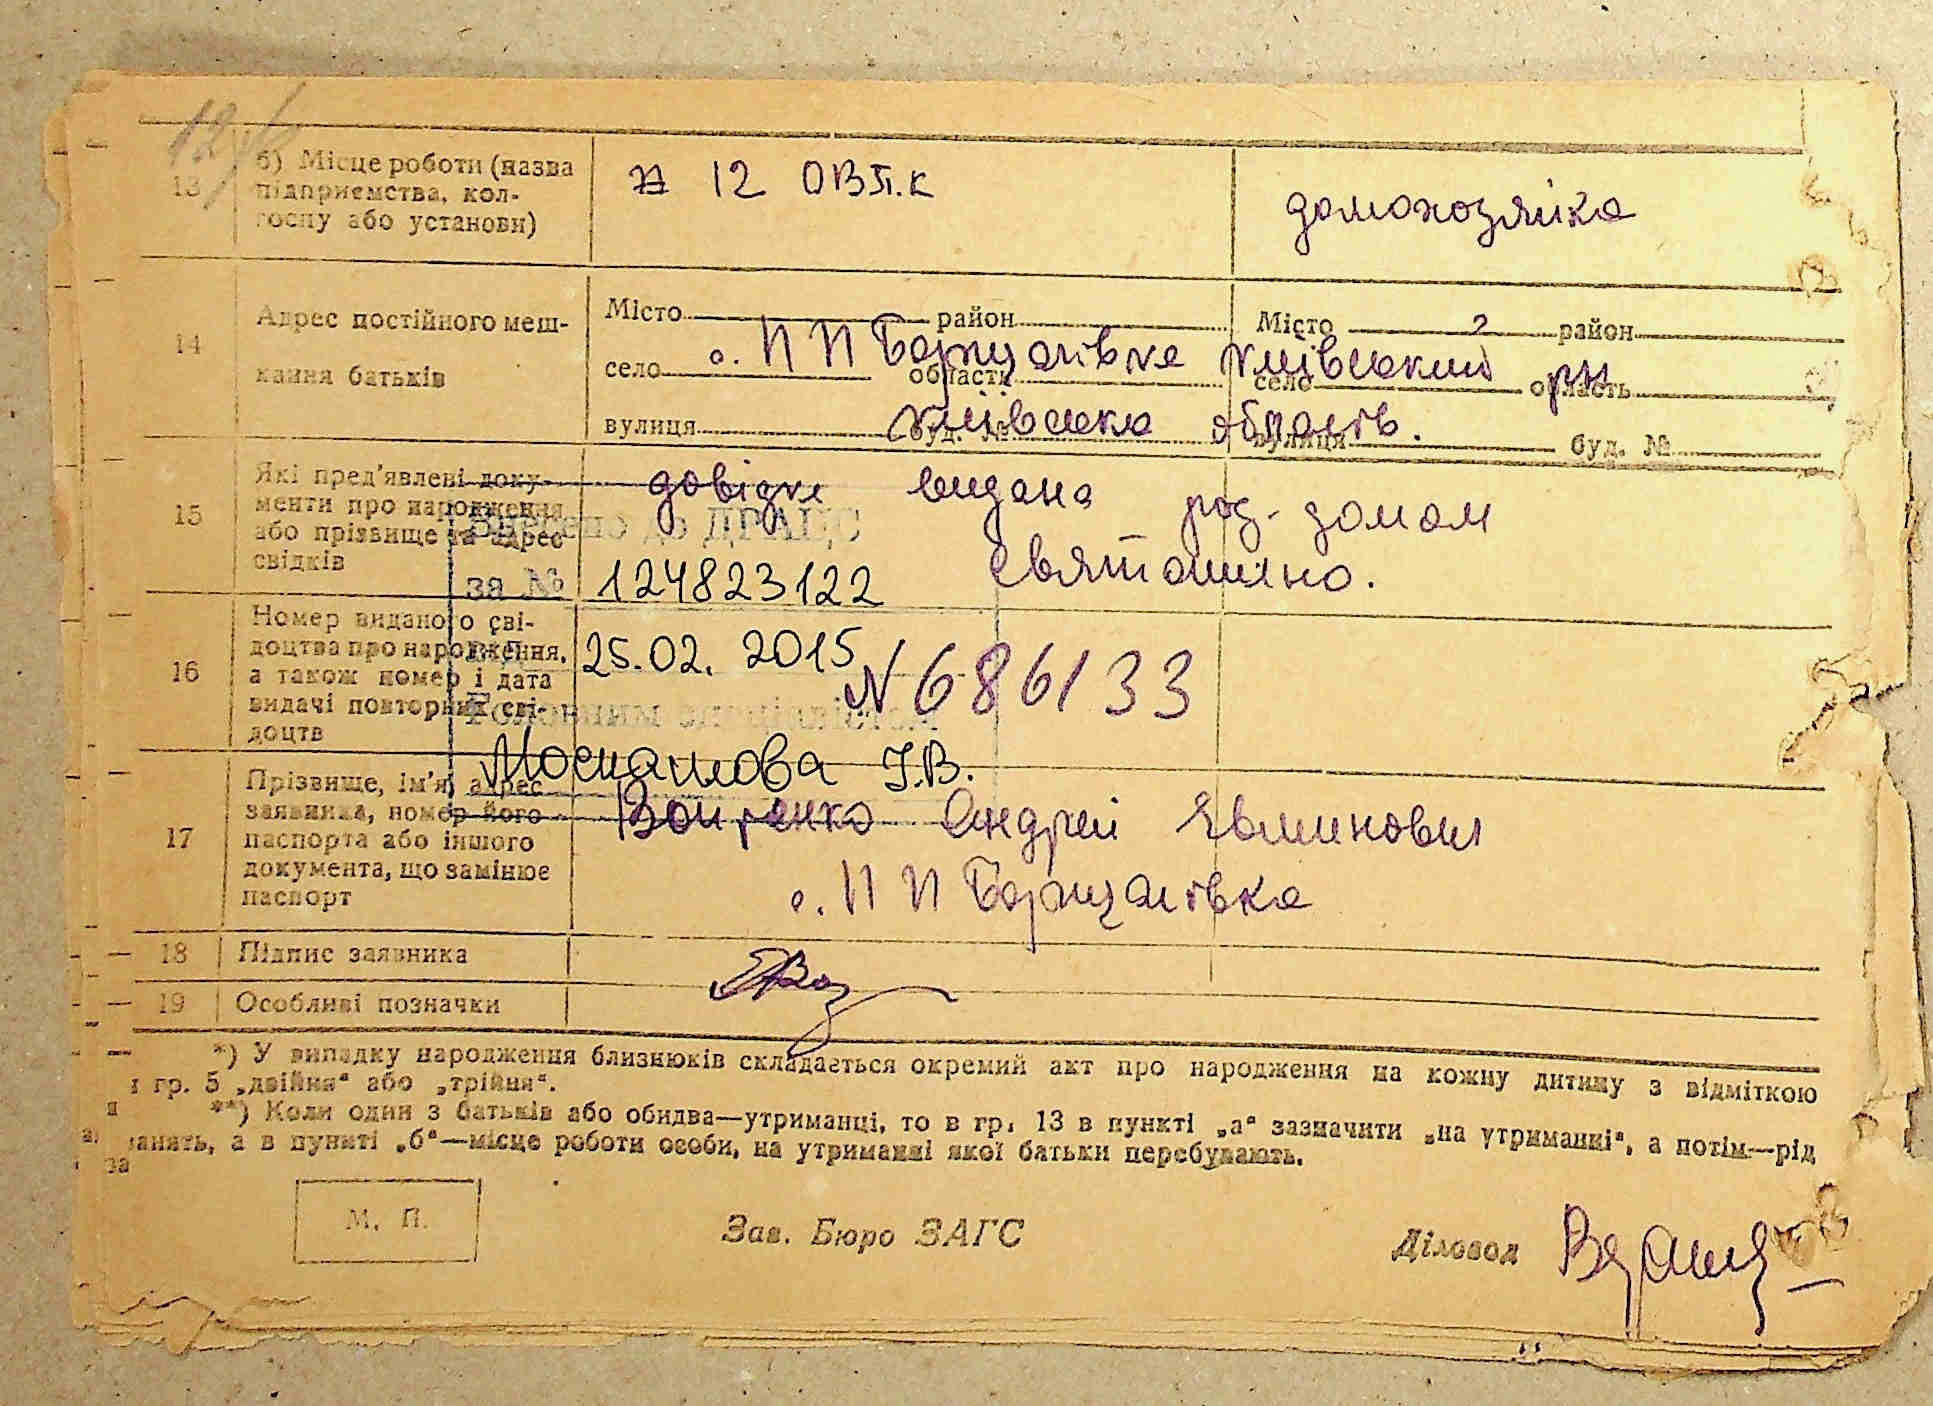 13 б) Місце роботи (назва
підприємства, кол-
госпу або установи)
12 ОВП.К
домохозяйка
14 Адрес постійного меш-
кання батьків
Місто район
село області
вулиця буд. №
Місто район
село область
вулиця буд. №
с. П П Борщагівка Київський рн
Київська область.
15 Які пред'явлені доку-
менти про народження
або прізвище та адрес
свідків
довідка видана род. домом
Святошино.
Внесено до ДРАЦС
за № 124823122
від 25.02.2015
Головним спеціалістом
Москалова І.В.
16 Номер виданого сві-
доцтва про народження,
а також номер і дата
видачі повторних сві-
доцтв
N 686133
17 Прізвище, ім'я, адрес
заявника, номер його
паспорта або іншого
документа, що замінює
паспорт
Андрей
с. П П Борщагівка
18 Підпис заявника
19 Особливі позначки
*) У випадку народження близнюків складається окремий акт про народження на кожну дитину з відміткою
гр. 5 „двійня“ або „трійня“.
**) Коли один з батьків або обидва—утриманці, то в гр. 13 в пункті „а“ зазначити „на утриманні“, а потім—рід
занять, а в пункті „б“—місце роботи особи, на утриманні якої батьки перебувають.
М. П.
Зав. Бюро ЗАГС
Діловод